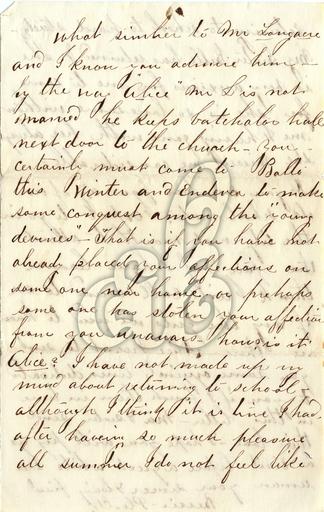 what similar to Mr Longacre
and I know you admire him -
by the way "Alice" Mr S is not
married he keeps batchalor hall
next door to the church - you
certainly must come to Balto
this Winter and Endever to make
some conquest among the "young
devines" - That is if you have not
already placed your affections on
some one near home, or perhaps
some one has stolen your affection
from you unawars - how is it
Alice? I have not made up my
mind about returning to school -
although I think it is time I had
after haveing so much pleasure
all summer I do not feel like